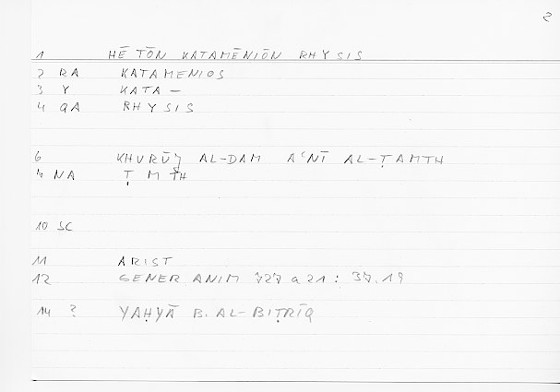 2
1 HĒ TŌN KATAMĒNIŌN RHYSIS
2 RA KATAMENIOS
3 Y KATA –
4 QA RHYSIS
6 KHURŪǦ AL-DAM AʿNĪ AL-ṬAMTH
9 NA ṬMTH
10 SC
11 ARIST
12 GENER ANIM 727 a 21 : 37.19
14 ? YAḤYĀ B. AL-BIṬRĪQ